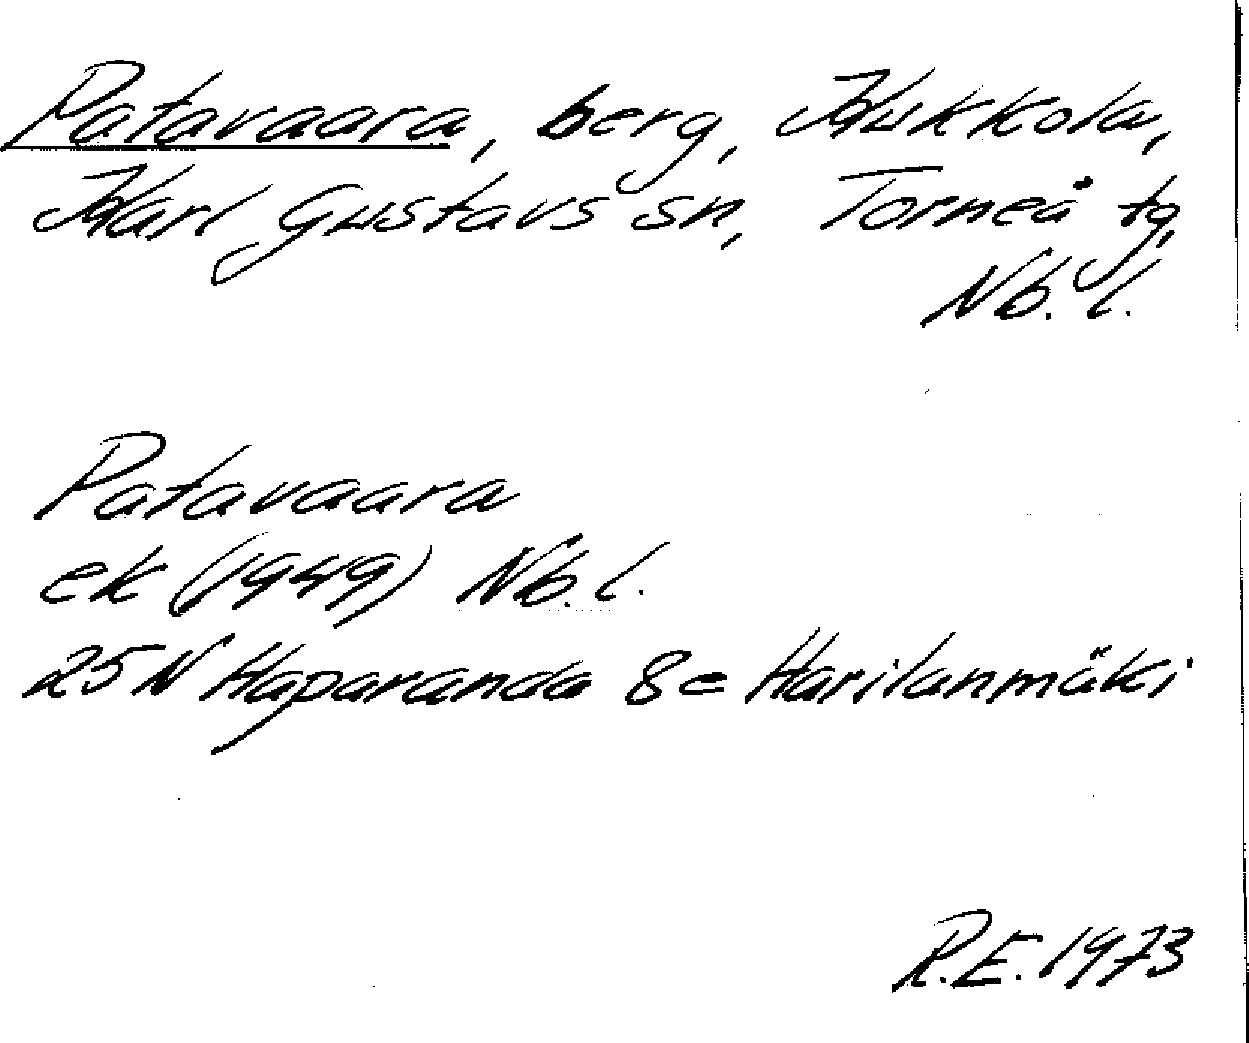 Patavaara, berg, Kukkola,
Karl Gustavs sn, Torneå tg,
Nb. l.
Patavaara
ek (1949) Nb. l.
25 N Haparanda 8e Harilanmäki
R.E. 1973